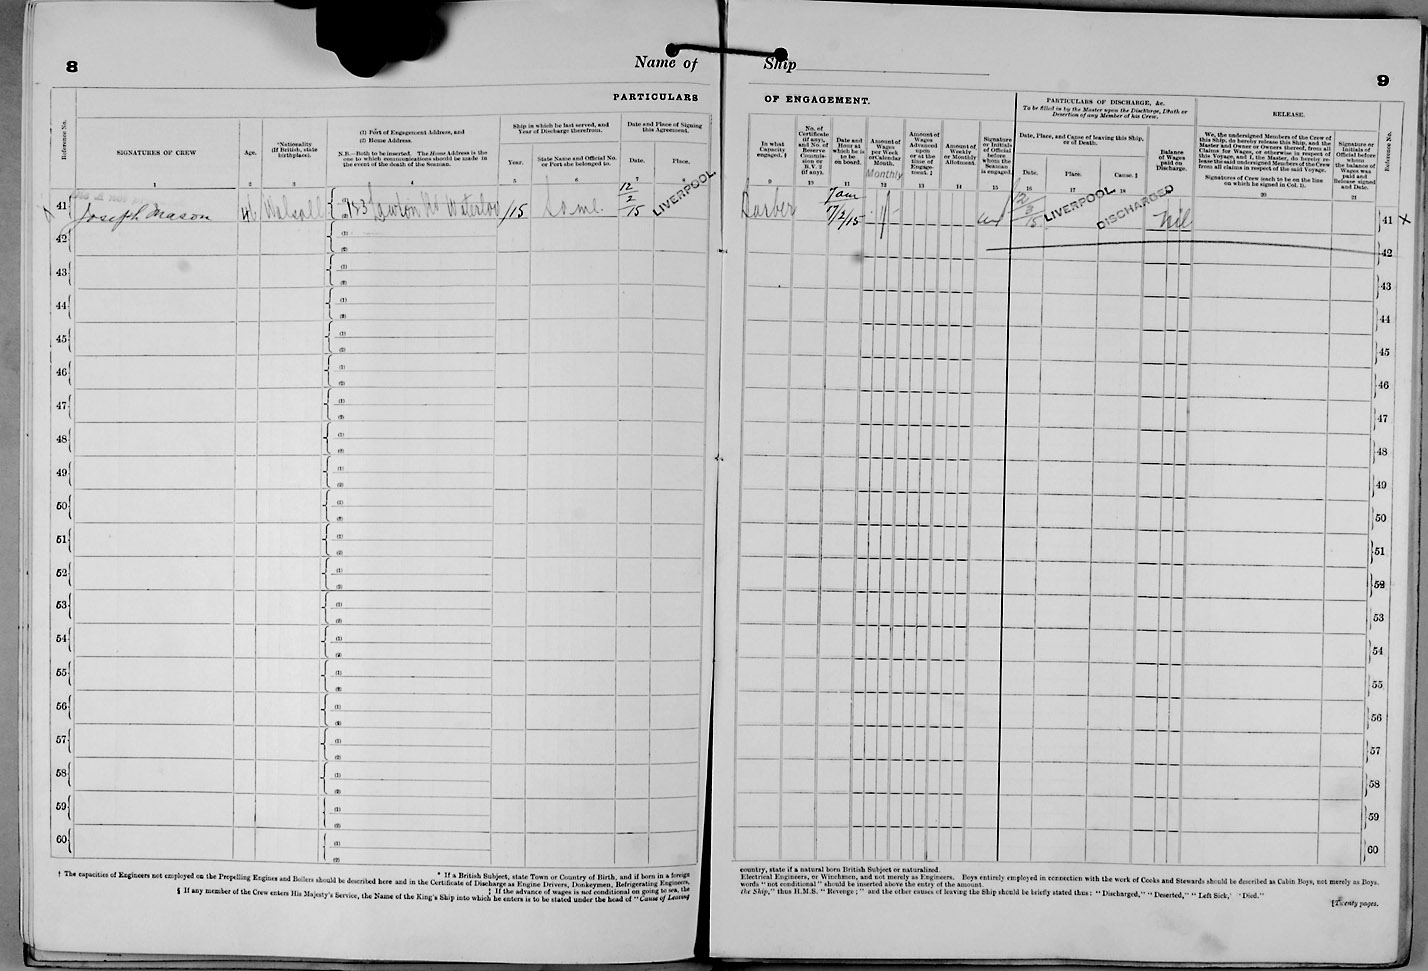 8
Name of
Ship
9
PARTICULARS
OF ENGAGEMENT.
Reference No.
SIGNATURES OF CREW
1
Age.
2
*Nationality
(If British, state
birthplace).
3
(1) Port of Engagement Address, and
(2) Home Address.
N.B.—Both to be inserted. The Home Address is the
one to which communications should be made in
the event of the death of the Seaman.
4
Ship in which he last served, and
Year of Discharge therefrom.
Year.
5
State Name and Official No.
or Port she belonged to.
6
Date and Place of Signing
this Agreement.
Date.
7
Place.
8
In what
Capacity
engaged. †
9
No. of
Certificate
(if any),
and No. of
Reserve
Commis-
sion or
R.V. 2
(if any).
10
Date and
Hour at
which he is
to be
on board.
11
Amount of
Wages
per Week
or Calendar
Month.
Monthly
12
Amount of
Wages
Advanced
upon
or at the
time of
Engage-
ment. ‡
13
Amount of
Weekly
or Monthly
Allotment.
14
Signature
or Initials
of Official
before
whom the
Seaman
is engaged.
15
PARTICULARS OF DISCHARGE, &c.
To be filled in by the Master upon the Discharge, Death or
Desertion of any Member of his Crew.
Date, Place, and Cause of leaving this Ship,
or of Death.
Date.
16
Place.
17
Cause. §
18
Balance
of Wages
paid on
Discharge.
19
RELEASE.
We, the undersigned Members of the Crew of
this Ship, do hereby release this Ship, and the
Master and Owner or Owners thereof, from all
Claims for Wages, or otherwise in respect of
this Voyage, and I, the Master, do hereby re-
lease the said undersigned Members of the Crew
from all claims in respect of the said Voyage.
Signatures of Crew (each to be on the line
on which he signed in Col. 1).
20
Signature or
Initials of
Official before
whom
the balance of
Wages was
paid and
Release signed
and Date.
21
Reference No.
41 Joseph Mason 46 Walsall 23 Lawton Rd Waterloo /15 Same 12/2/15 LIVERPOOL Barber 7 am 17/2/15 LIVERPOOL DISCHARGED Nil 41 X
42 (1) (2) 42
43 (1) (2) 43
44 (1) (2) 44
45 (1) (2) 45
46 (1) (2) 46
47 (1) (2) 47
48 (1) (2) 48
49 (1) (2) 49
50 (1) (2) 50
51 (1) (2) 51
52 (1) (2) 52
53 (1) (2) 53
54 (1) (2) 54
55 (1) (2) 55
56 (1) (2) 56
57 (1) (2) 57
58 (1) (2) 58
59 (1) (2) 59
60 (1) (2) 60
* If a British Subject, state Town or Country of Birth, and if born in a foreign
country, state if a natural born British Subject or naturalized.
† The capacities of Engineers not employed on the Propelling Engines and Boilers should be described here and in the Certificate of Discharge as Engine Drivers, Donkeymen, Refrigerating Engineers,
Electrical Engineers, or Winchmen, and not merely as Engineers. Boys entirely employed in connection with the work of Cooks and Stewards should be described as Cabin Boys, not merely as Boys.
‡ If the advance of wages is not conditional on going to sea, the
words "not conditional" should be inserted above the entry of the amount.
§ If any member of the Crew enters His Majesty's Service, the Name of the King's Ship into which he enters is to be stated under the head of "Cause of Leaving
the Ship," thus H.M.S. "Revenge;" and the other causes of leaving the Ship should be briefly stated thus: "Discharged," "Deserted," "Left Sick," "Died."
[Twenty pages.